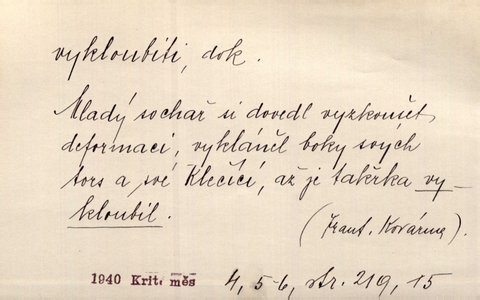 vykloubiti, dok.
Mladý sochař si dovedl vyzkoušet
deformaci, vykláněl boky svých
tors a své Klečící, až je takřka vy-
kloubil.
(Frant. Kovárna).
1940 Krit. měs 4, 5-6, str. 219, 15